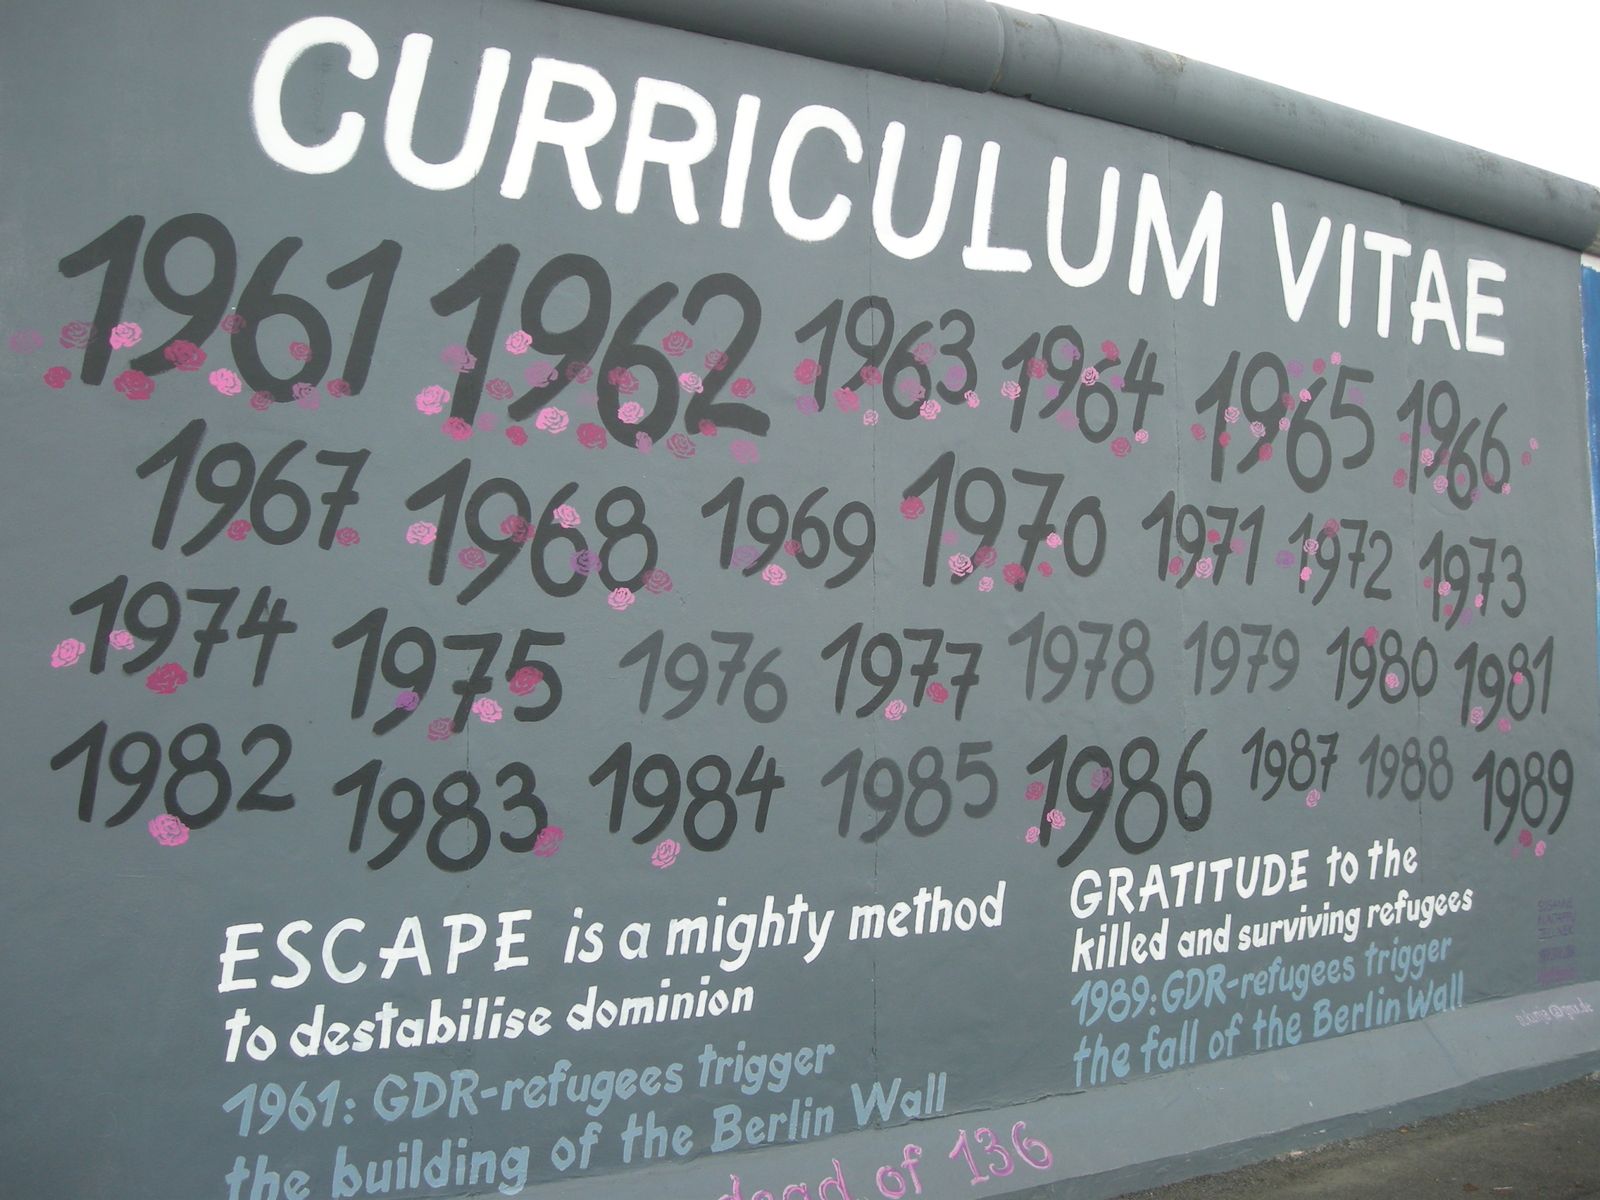 CURRICULUM VITAE
1961 1962 1963 1964 1965 1966
1967 1968 1969 1970 1971 1972 1973
1974 1975 1976 1977 1978 1979 1980 1981
1982 1983 1984 1985 1986 1987 1988 1989
ESCAPE is a mighty method
to destabilise dominion
1961: GDR-refugees trigger
the building of the Berlin Wall
GRATITUDE to the
killed and surviving refugees
1989: GDR-refugees trigger
the fall of the Berlin Wall
dead of 136